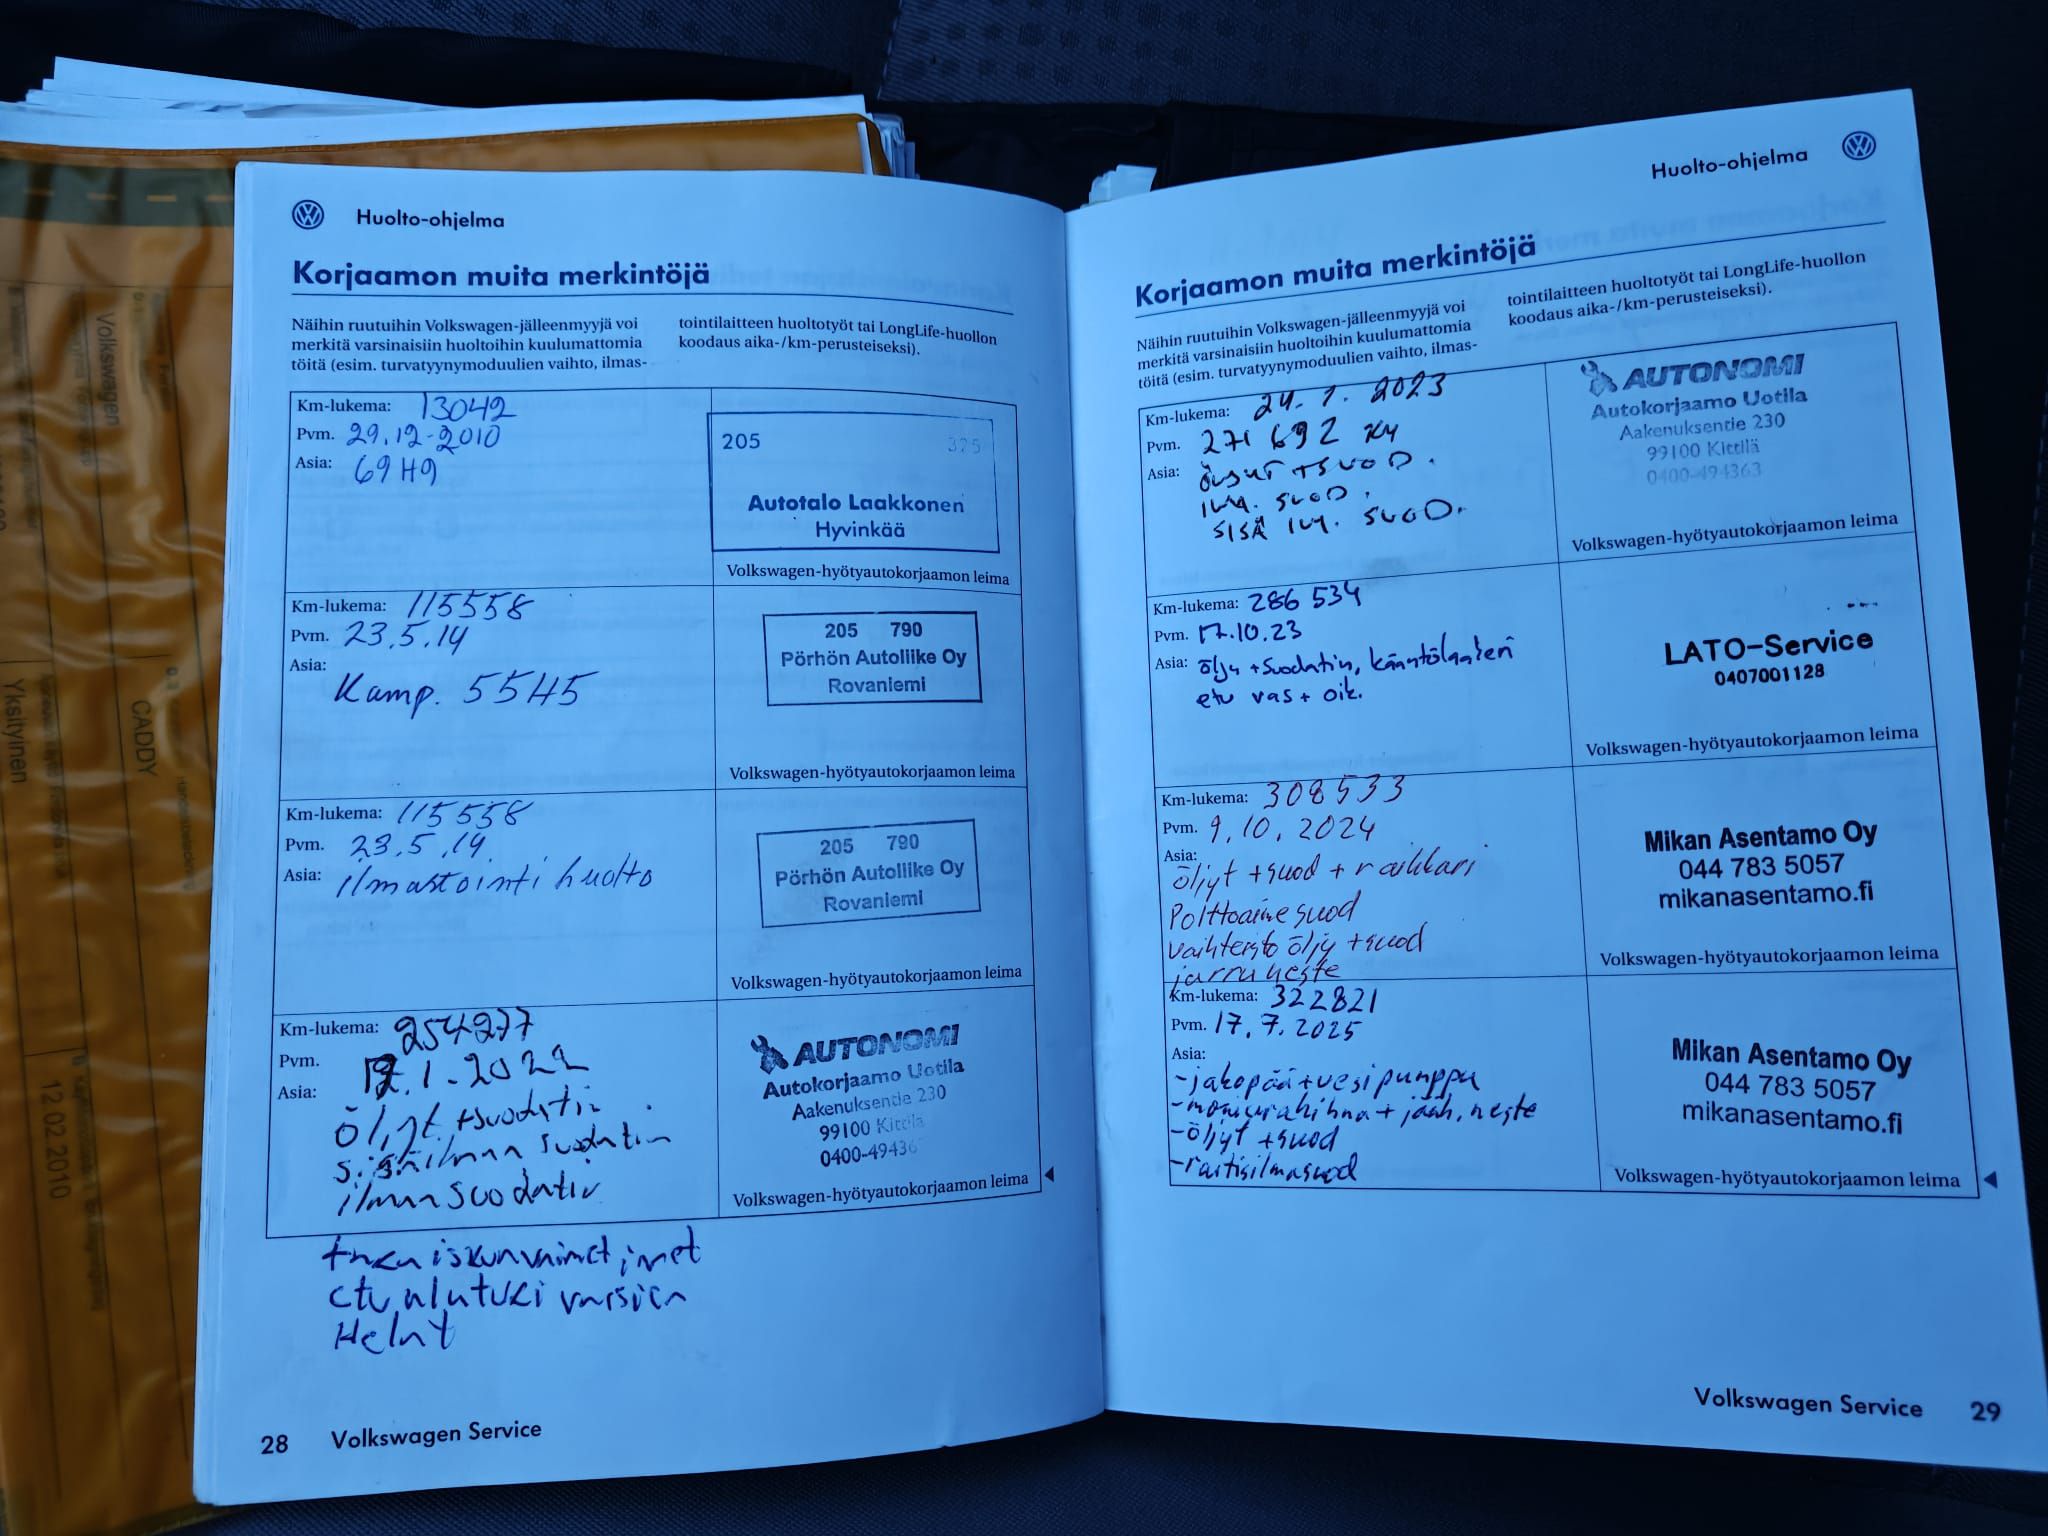 Huolto-ohjelma
Korjaamon muita merkintöjä
Näihin ruutuihin Volkswagen-jälleenmyyjä voi
merkitä varsinaisiin huoltoihin kuulumattomia
töitä (esim. turvatyynymoduulien vaihto, ilmas-
tointilaitteen huoltotyöt tai LongLife-huollon
koodaus aika-/km-perusteiseksi).
Km-lukema: 13042
Pvm. 29.12-2010
Asia: 69H9
205 325
Autotalo Laakkonen
Hyvinkää
Volkswagen-hyötyautokorjaamon leima
Km-lukema: 115558
Pvm. 23.5.14
Asia:
Kamp. 55H5
205 790
Pörhön Autoliike Oy
Rovaniemi
Volkswagen-hyötyautokorjaamon leima
Km-lukema: 115558
Pvm. 23.5.14
Asia: ilmastointi huolto
205 790
Pörhön Autoliike Oy
Rovaniemi
Volkswagen-hyötyautokorjaamon leima
Km-lukema: 254277
Pvm. 12.1.2022
Asia:
öljyt +suodatin
sisäilman suodatin
ilman suodatin
AUTONOMI
Autokorjaamo Uotila
Aakenuksentie 230
99100 Kittilä
0400-49436
Volkswagen-hyötyautokorjaamon leima
taka iskunvaimetimet
etu alatuki varsien
Helat
28 Volkswagen Service
Huolto-ohjelma
Korjaamon muita merkintöjä
Näihin ruutuihin Volkswagen-jälleenmyyjä voi
merkitä varsinaisiin huoltoihin kuulumattomia
töitä (esim. turvatyynymoduulien vaihto, ilmas-
tointilaitteen huoltotyöt tai LongLife-huollon
koodaus aika-/km-perusteiseksi).
Km-lukema: 24.1.2023
Pvm. 271 692 KM
Asia: +SUOD.
ILM. SUOD.
SISÄ ILM. SUOD.
AUTONOMI
Autokorjaamo Uotila
Aakenuksentie 230
99100 Kittilä
0400-494363
Volkswagen-hyötyautokorjaamon leima
Km-lukema: 286 534
Pvm. 17.10.23
Asia: öljy +suodatin, kääntölaakeri
etu vas + oik.
LATO-Service
0407001128
Volkswagen-hyötyautokorjaamon leima
Km-lukema: 308533
Pvm. 9.10.2024
Asia:
öljyt +suod + raikkari
Polttoaine suod
vaihteisto öljy +suod
jarruneste
Mikan Asentamo Oy
044 783 5057
mikanasentamo.fi
Volkswagen-hyötyautokorjaamon leima
Km-lukema: 322821
Pvm. 17.7.2025
Asia:
-jakopää+vesipumppu
-moniurahihna + jääh.neste
-öljyt +suod
-raitisilmasuod
Mikan Asentamo Oy
044 783 5057
mikanasentamo.fi
Volkswagen-hyötyautokorjaamon leima
Volkswagen Service 29
Volkswagen
CADDY
Yksityinen
12 02 2010